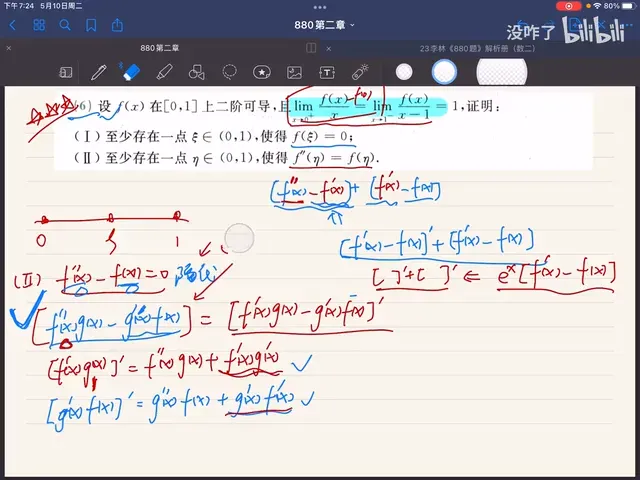 下午7:24 5月10日周二
80%
880第二章
没咋了 bilibili
880第二章
23李林《880题》解析册（数二）
(6) 设 f(x) 在[0,1]上二阶可导,且 lim_{x→0⁺} f(x)/x = lim_{x→1⁻} f(x)/(x-1) = 1,证明:
-f(0)
(Ⅰ) 至少存在一点 ξ∈(0,1),使得 f(ξ)=0;
(Ⅱ) 至少存在一点 η∈(0,1),使得 f″(η)=f(η).
[f″(x)-f′(x)]+[f′(x)-f(x)]
0 ξ 1
[f′(x)-f(x)]′+[f′(x)-f(x)]
(Ⅱ) f″(x)-f(x)=0
[ ]′+[ ]′ ⇐ eˣ[f′(x)-f(x)]
[f″(x)g(x)-g″(x)f(x)] = [f′(x)g(x)-g′(x)f(x)]′
[f′(x)g(x)]′=f″(x)g(x)+f′(x)g′(x)
[g′(x)f(x)]′=g″(x)f(x)+g′(x)f′(x)